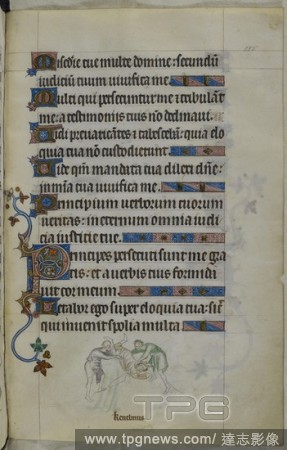 115
Misedie tue multe domine: secundū
iudiciū tuum uiuifica me.
Multi qui persecunturme & tribulant
me: a testimoniis tuis nō declinaui.
Vidi preuaricātes & tabescebā: quia elo
quia tua nō custodierunt.
Vide qm̄ mandata tua dilexi dn̄e:
in mīa tua uiuifica me.
Principium uerborum tuorum
ueritas: in eternum omnia iudi
cia iusticie tue.
Principes persecuti sunt me gra
tis: et a uerbis tuis formida
uit cor meum.
Letabor ego super eloquia tua: sic̄
qui inuenit spolia multa
TPG
www.tpgnews.com/ 達志影像